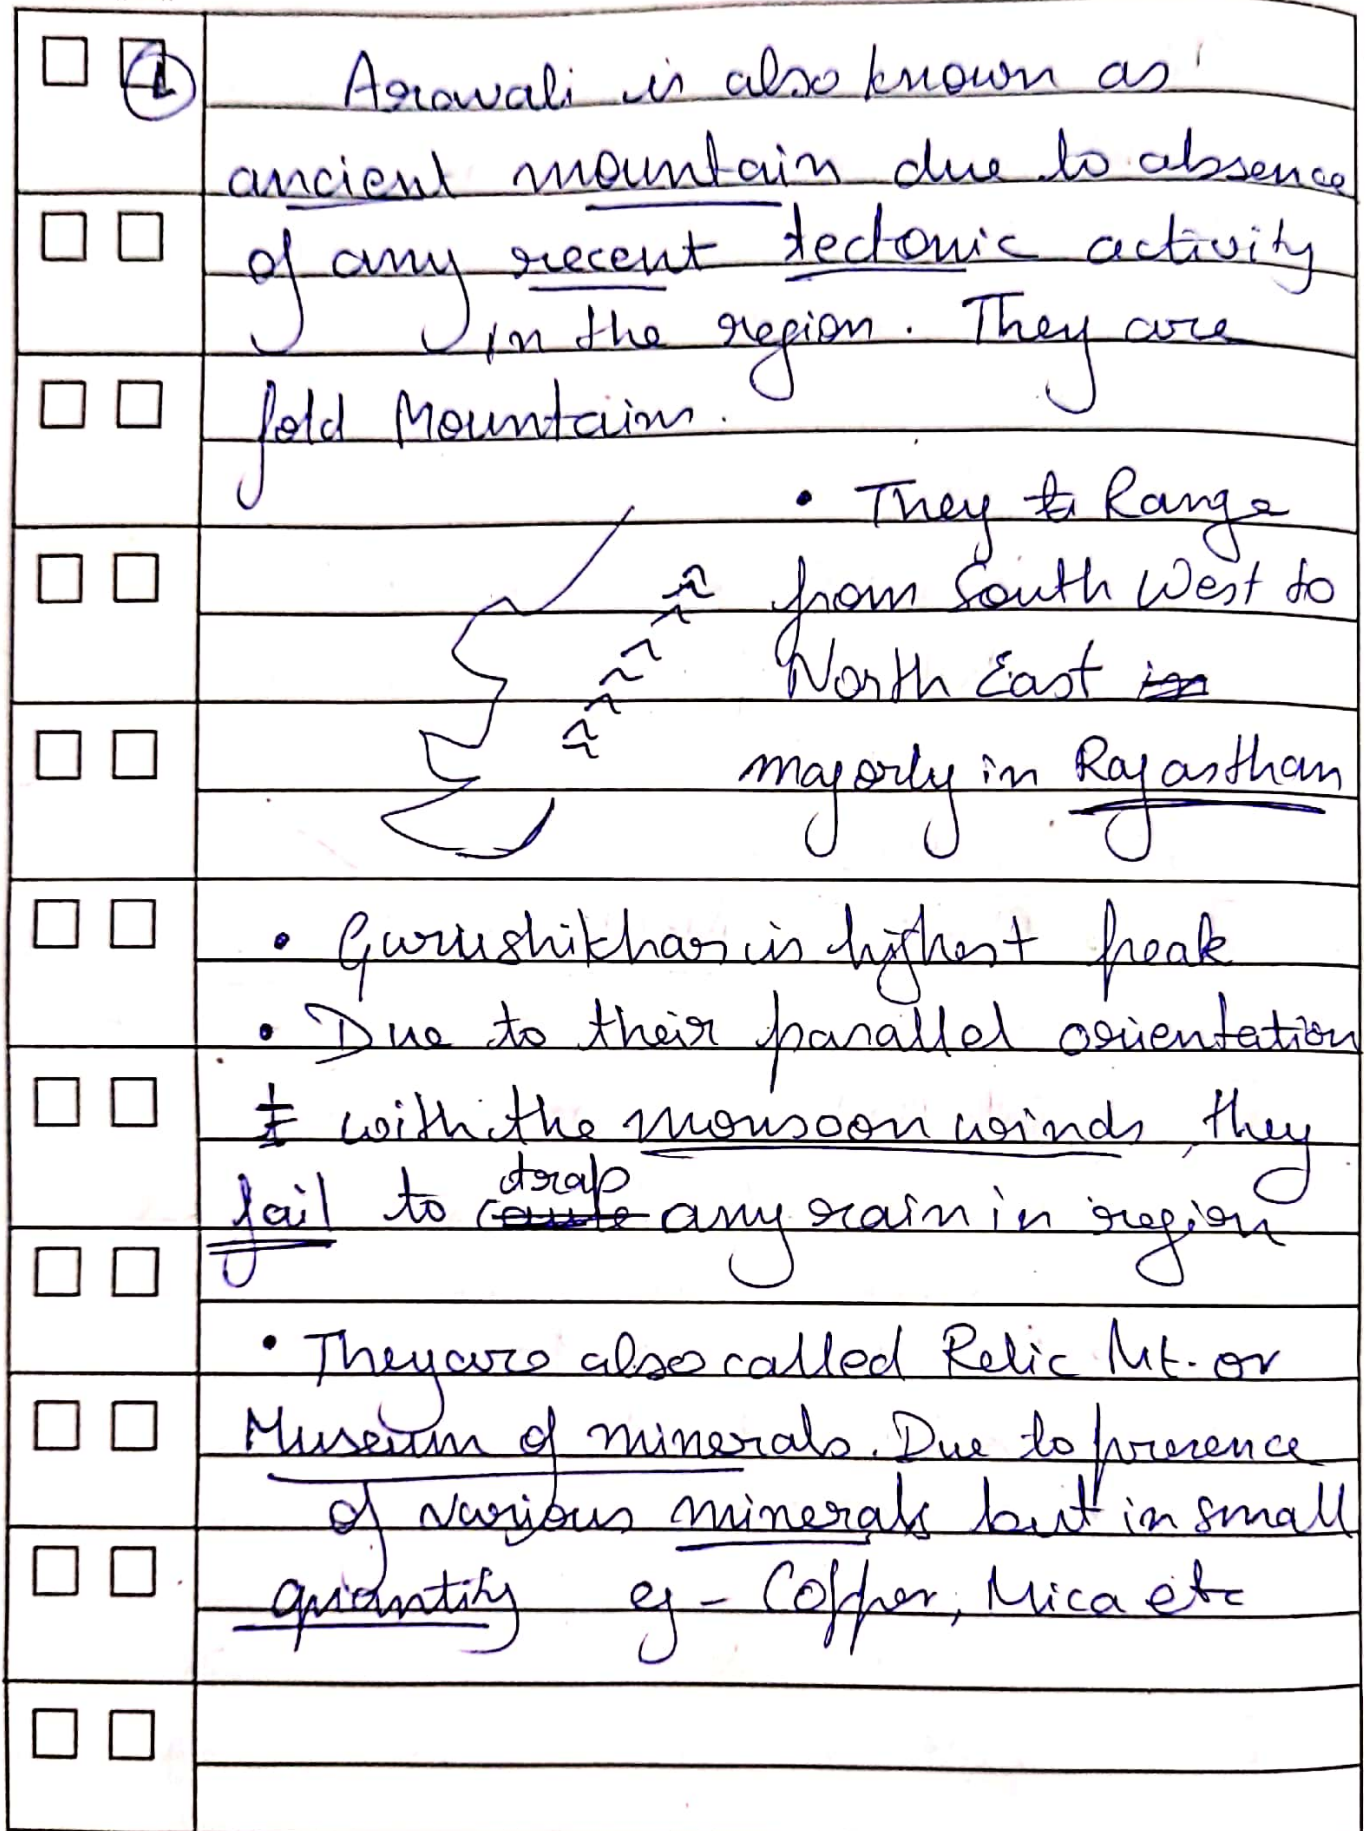 1
Aravali is also known as
ancient mountain due to absence
of any recent tectonic activity
in the region. They are
fold Mountains.
• They Range
from South West to
North East in
majorly in Rajasthan
• Gurushikhar is highest peak
• Due to their parallel orientation
with the monsoon winds, they
fail to trap any rain in region
• They are also called Relic Mt. or
Museum of minerals. Due to presence
of various minerals but in small
quantity eg - Copper, Mica etc